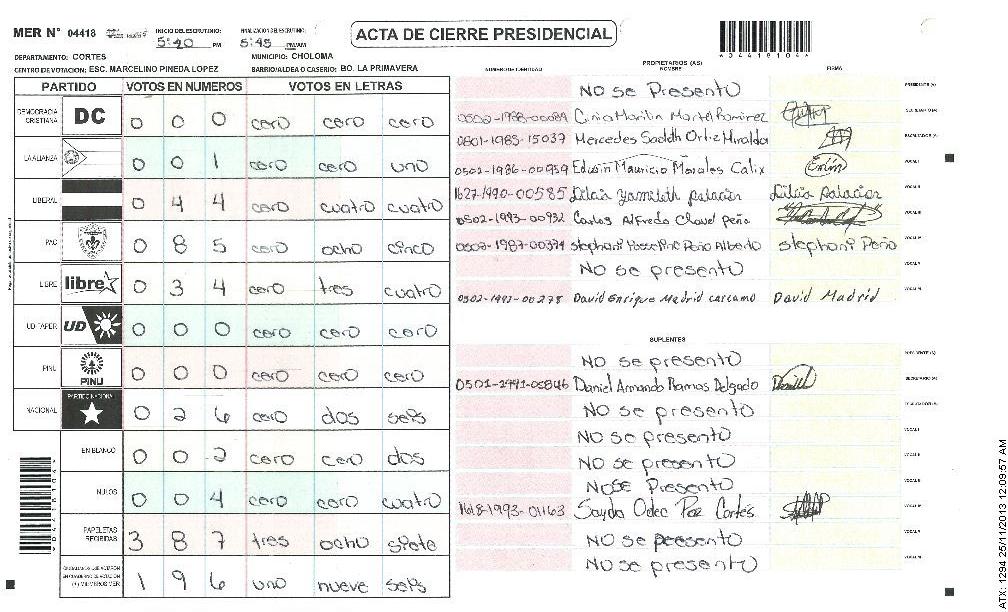 MER N° 04418 INICIO DEL ESCRUTINIO: 5:40 PM FINALIZACION DEL ESCRUTINIO: 5:45 PM/AM
ACTA DE CIERRE PRESIDENCIAL
*04418104*
DEPARTAMENTO: CORTES MUNICIPIO: CHOLOMA
CENTRO DE VOTACION: ESC. MARCELINO PINEDA LOPEZ BARRIO/ALDEA O CASERIO: BO. LA PRIMAVERA
PARTIDO VOTOS EN NUMEROS VOTOS EN LETRAS
DEMOCRACIA CRISTIANA DC 0 0 0 cero cero cero
LA ALIANZA 0 0 1 cero cero uno
LIBERAL 0 4 4 cero cuatro cuatro
PAC 0 8 5 cero ocho cinco
LIBRE libre 0 3 4 cero tres cuatro
UD FAPER UD 0 0 0 cero cero cero
PINU PINU 0 0 0 cero cero cero
NACIONAL PARTIDO NACIONAL 0 2 6 cero dos seis
EN BLANCO 0 0 2 cero cero dos
NULOS 0 0 4 cero cero cuatro
PAPELETAS RECIBIDAS 3 8 7 tres ocho siete
CIUDADANOS QUE VOTARON EN CUADERNO DE VOTACION (+) MIEMBROS MER 1 9 6 uno nueve seis
NUMERO DE IDENTIDAD PROPIETARIOS (AS) NOMBRE FIRMA
NO se Presento PRESIDENTE (A)
Martel Ramirez SECRETARIO (A)
0801-1983-15037 Mercedes Ortiz Miralda ESCRUTADOR (A)
0502-1986-00939 Edwin Mauricio Morales Calix Edwin VOCAL I
1627-1990-00585 Lilian Yamileth palacios Lilian palacios VOCAL II
0502-1993-00932 Carlos Alfredo Clavel peña VOCAL III
stephani Peño Alberto stephani Peño VOCAL IV
NO se presento VOCAL V
David Enrique Madrid carcamo David Madrid VOCAL VI
SUPLENTES
NO se presento PRESIDENTE (A)
Daniel Armando Ramos Delgado SECRETARIO (A)
NO se presento ESCRUTADOR (A)
NO se presento VOCAL I
NO se presento VOCAL II
NOSE Presento VOCAL III
Sayda Paz Cortés VOCAL IV
NO se peesento VOCAL V
NO se presento VOCAL VI
ATX: 1294 25/11/2013 12:09:57 AM